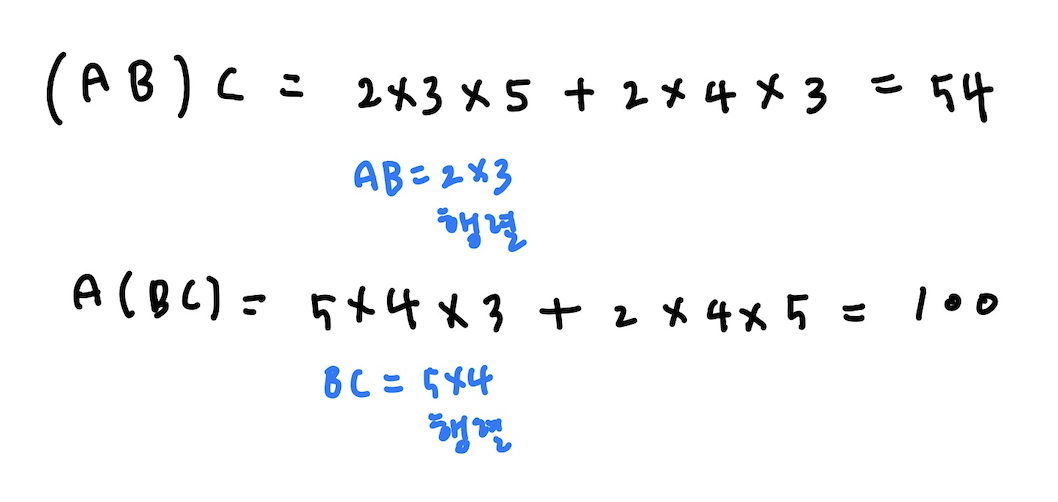 (AB)C = 2×3×5 + 2×4×3 = 54
AB=2×3
행렬
A(BC) = 5×4×3 + 2×4×5 = 100
BC = 5×4
행렬